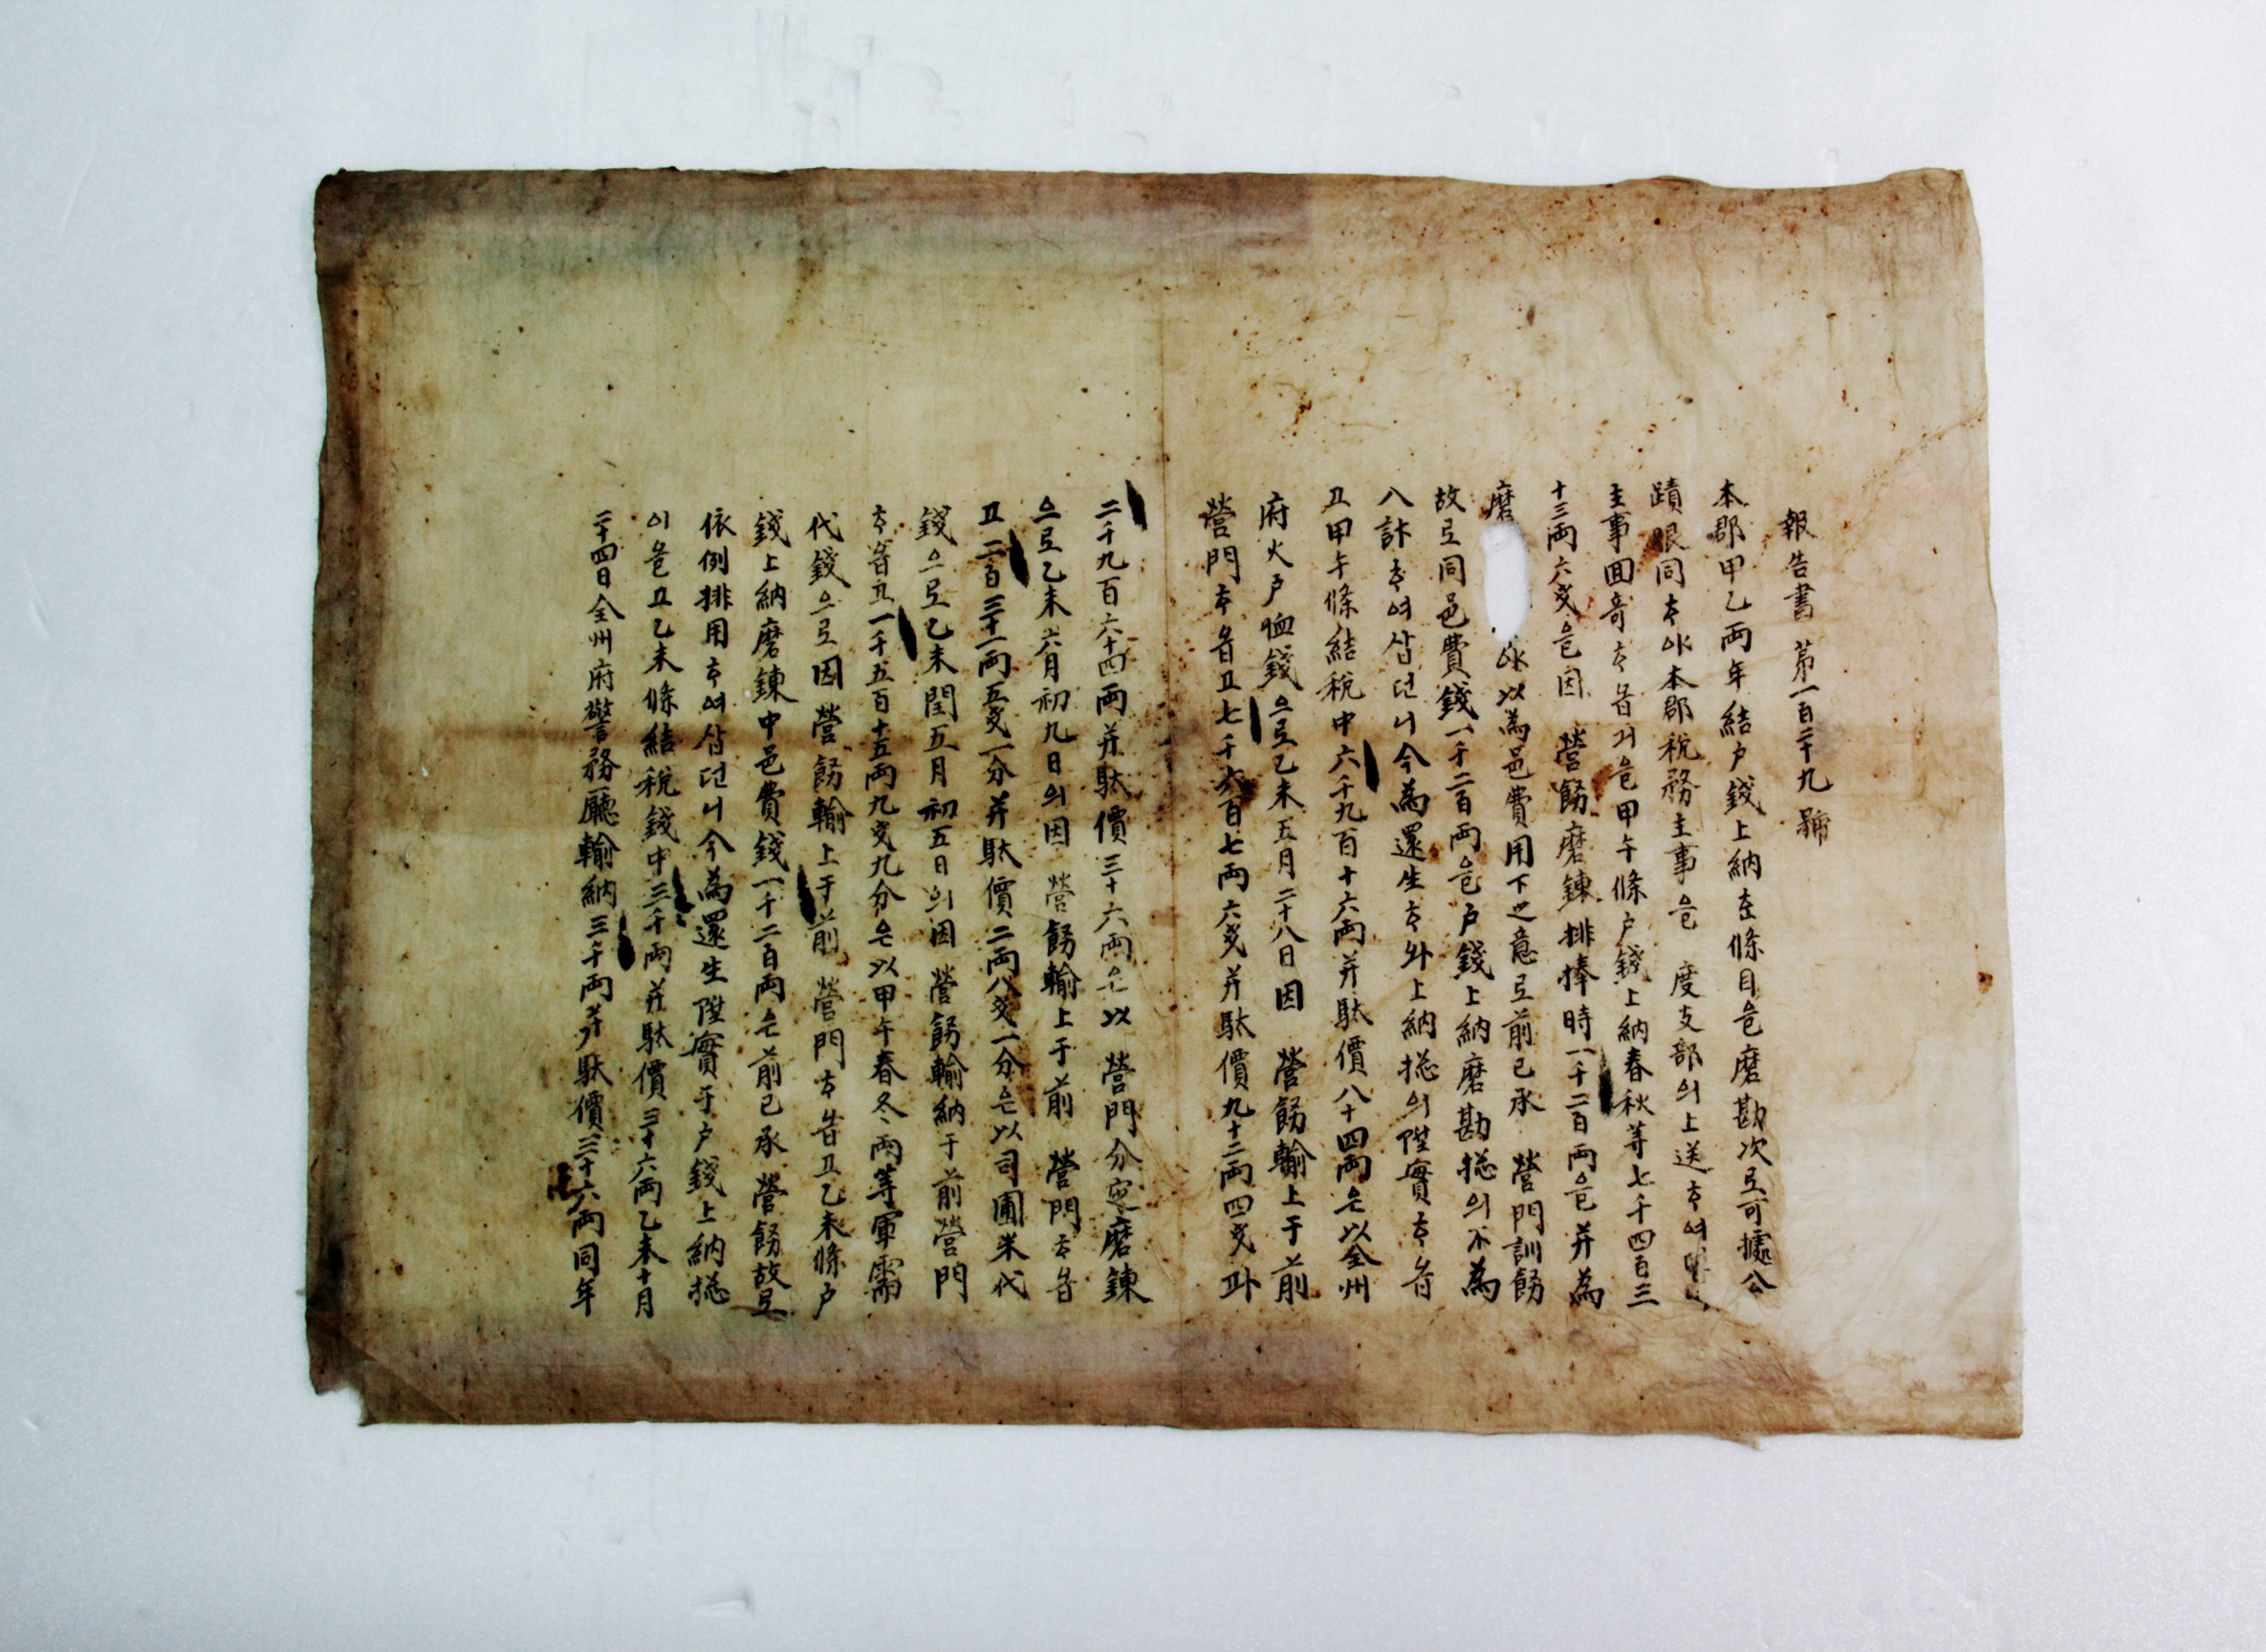 報告書 第一百二十九號
本郡甲乙兩年結戶錢上納在條目을磨勘次로可據公
蹟眼同ᄒᆞ야本郡稅務主事을 度支部의上送ᄒᆞ여
主事回奇ᄒᆞ옵거을甲午條戶錢上納春秋等七千四百三
十三兩六戔을因 營飭磨鍊排捧時一千二百兩을并為
磨 야以為邑費用下之意로前已承 營門訓飭
故로同邑費錢一千二百兩을戶錢上納磨勘摠의不為
八計ᄒᆞ여삽던니今為還生ᄒᆞ와上納摠의陞實ᄒᆞ옵
고甲午條結稅中六千九百十六兩并駄價八十四兩은以全州
府火戶恤錢으로乙未五月二十八日因 營飭輸上于前
營門ᄒᆞ옵고七千六百七兩六戔并駄價九十二兩四戔과
二千九百六十四兩并駄價三十六兩은以 營門分定磨鍊
으로乙未六月初九日의因 營飭輸上于前 營門ᄒᆞ옵
고二百三十一兩五戔一分并駄價二兩八戔一分은以司圃米代
錢으로乙未閏五月初五日의因 營飭輸納于前營門
ᄒᆞ옵고一千五百十五兩九戔九分은以甲午春冬兩等軍需
代錢으로因 營飭輸上于前 營門ᄒᆞ옵고乙未條戶
錢上納磨鍊中邑費錢一千二百兩은前已承 營飭故로
依例排用ᄒᆞ여삽던니今為還生陞實于戶錢上納摠
이을고乙未條結稅錢中三千兩并駄價三十六兩乙未十月
二十四日全州府警務廳輸納三千兩并駄價三十六兩同年